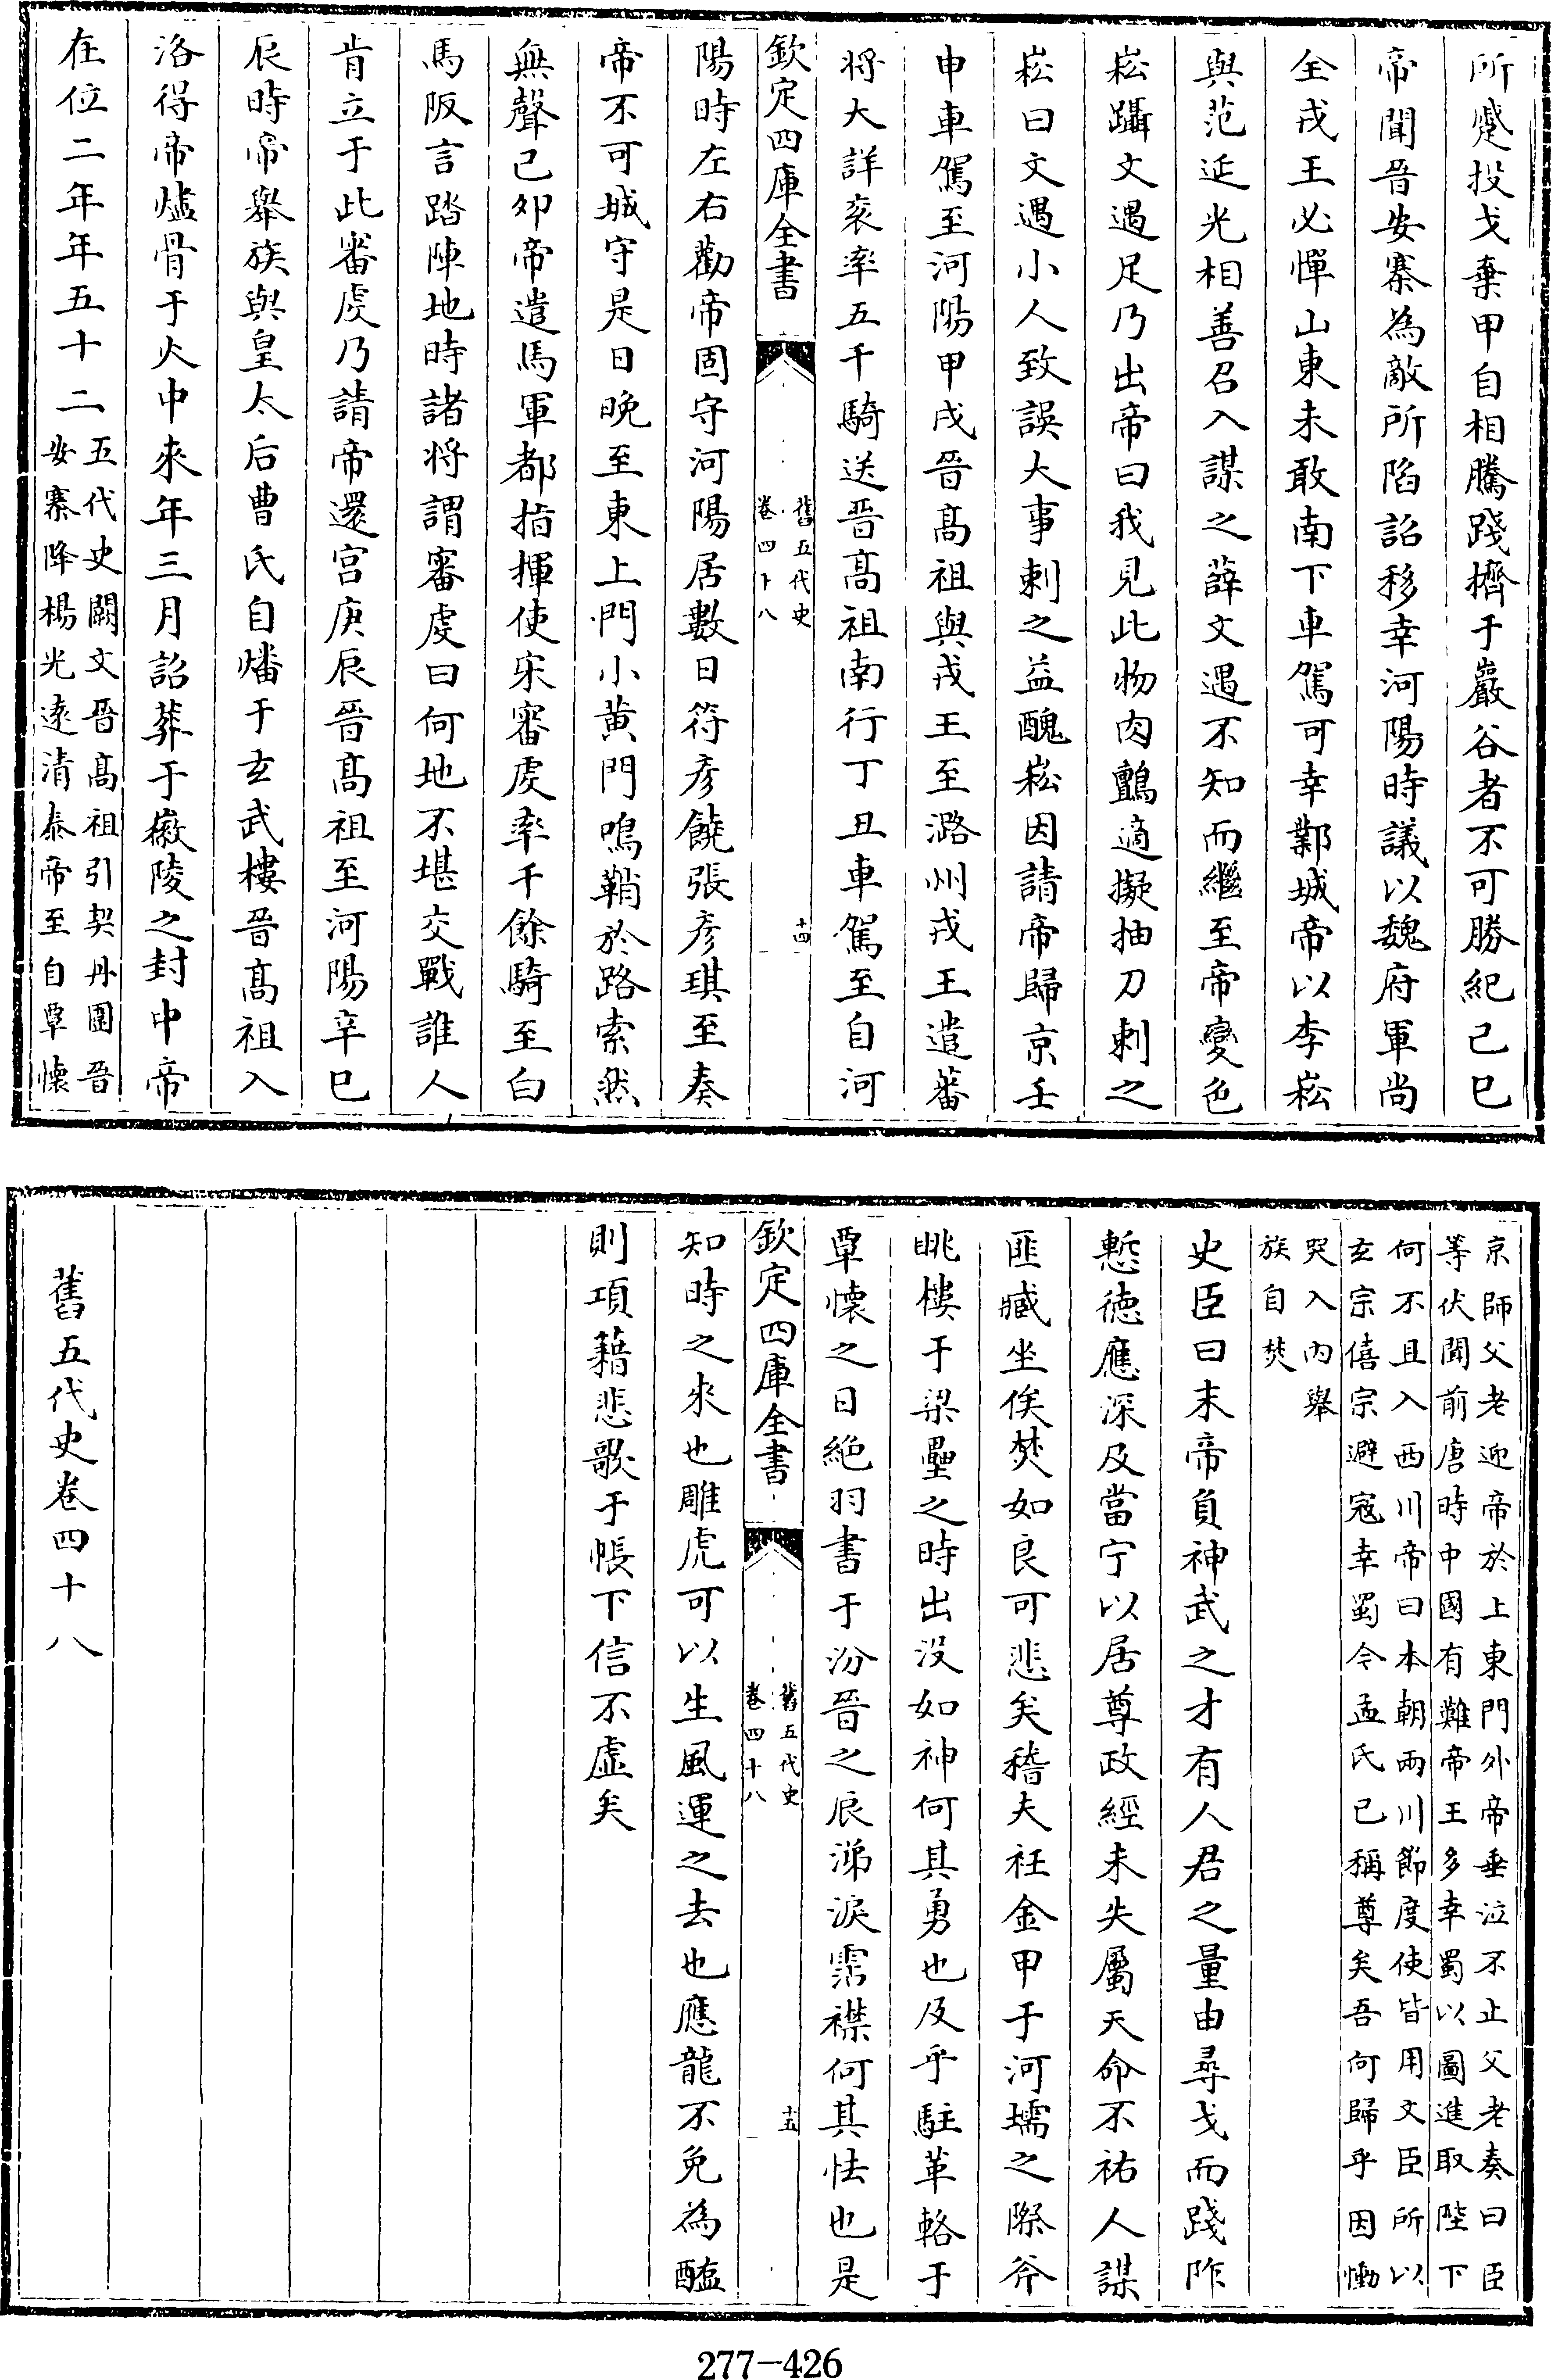 所蹙投戈棄甲自相騰踐擠于巖谷者不可勝紀己巳
帝聞晉安寨為敵所陷詔移幸河陽時議以魏府軍尚
全戎王必憚山東未敢南下車駕可幸鄴城帝以李崧
與范延光相善召入謀之薛文遇不知而繼至帝變色
崧躡文遇足乃出帝曰我見此物肉顫適擬抽刀刺之
崧曰文遇小人致誤大事刺之益醜崧因請帝歸京壬
申車駕至河陽甲戌晉髙祖與戎王至潞州戎王遣蕃
将大詳衮率五千騎送晉髙祖南行丁丑車駕至自河
欽定四庫全書
舊五代史
卷四十八
十四
陽時左右勸帝固守河陽居數日符彦饒張彦琪至奏
帝不可城守是日晚至東上門小黄門鳴鞘於路索然
無聲己夘帝遣馬軍都指揮使宋審虔率千餘騎至白
馬阪言踏陣地時諸将謂審虔曰何地不堪交戰誰人
肯立于此審虔乃請帝還宫庚辰晉髙祖至河陽辛巳
辰時帝舉族與皇太后曹氏自燔于玄武樓晉髙祖入
洛得帝燼骨于火中來年三月詔葬于徽陵之封中帝
在位二年年五十二
五代史闕文晉髙祖引契丹圍晉
安寨降楊光遠清泰帝至自覃懷
京師父老迎帝於上東門外帝垂泣不止父老奏曰臣
等伏聞前唐時中國有難帝王多幸蜀以圖進取陛下
何不且入西川帝曰本朝兩川節度使皆用文臣所以
玄宗僖宗避寇幸蜀今孟氏已稱尊矣吾何歸乎因慟
哭入内舉
族自焚
史臣曰末帝負神武之才有人君之量由尋戈而踐阼
慙徳應深及當宁以居尊政經未失屬天命不祐人謀
匪臧坐俟焚如良可悲矣稽夫衽金甲于河壖之際斧
眺樓于梁壘之時出没如神何其勇也及乎駐革輅于
覃懷之日絶羽書于汾晉之辰涕淚霑襟何其怯也是
欽定四庫全書
舊五代史
卷四十八
十五
知時之來也雕虎可以生風運之去也應龍不免為醢
則項籍悲歌于帳下信不虚矣
舊五代史卷四十八
277-426